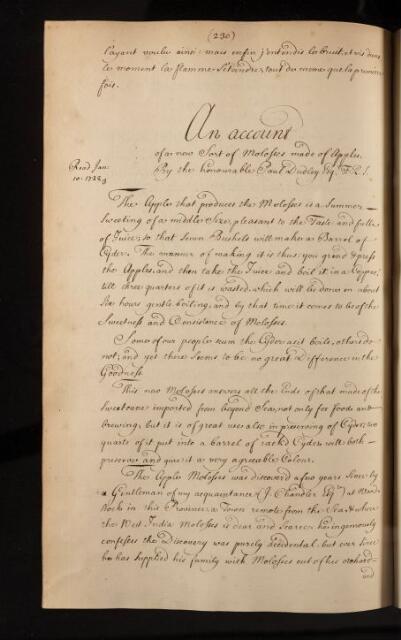 (230)
l'ayant voulu ainsi: mais enfin j'entendis le bruit, et vis dans
le moment la flamme s'étendre, tout de meme que la premiere
fois.
An account
of a new Sort of Molosses made of Apples.
Read Jan:
10. 1722/3
By the honourable Paul Dudley Esq. F.R.S.
The Apple that produces the Molosses is a Summer-
Sweeting of a middle Size, pleasant to the Taste and full
of Juice; so that Seven Bushels will make a Barrel of
Cyder. The manner of making it is thus; you grind & press
the Apples, and then take the Juice and boil it in a Copper,
till three quarters of it is wasted, which will be done in about
Six hours gentle boiling; and by that time it comes to be of the
Sweetness and Consistence of Molosses.
Some of our people scum the Cyder as it boils, others do
not; and yet there Seems to be no great Difference in the
Goodness.
This new Molosses answers all the Ends of that made of the
Sweet cane imported from beyond Sea, not only for Food and
brewing, but it is of great use also in preserving of Cyder; two
quarts of it put into a barrel of rack'd Cyder will both
preserve and give it a very agreeable Colour.
The Apple Molosses was discoverd a few years Since by
a Gentleman of my acquaintance (J. Chandler Esqr.) at Wood-
stock in this Province, a Town remote from the Sea & where
the West India Molosses is dear and Scarce: he ingenously
confesses the Discovery was purely accidental; but ever Since
he has Supplied his family with Molosses out of his orchard
and